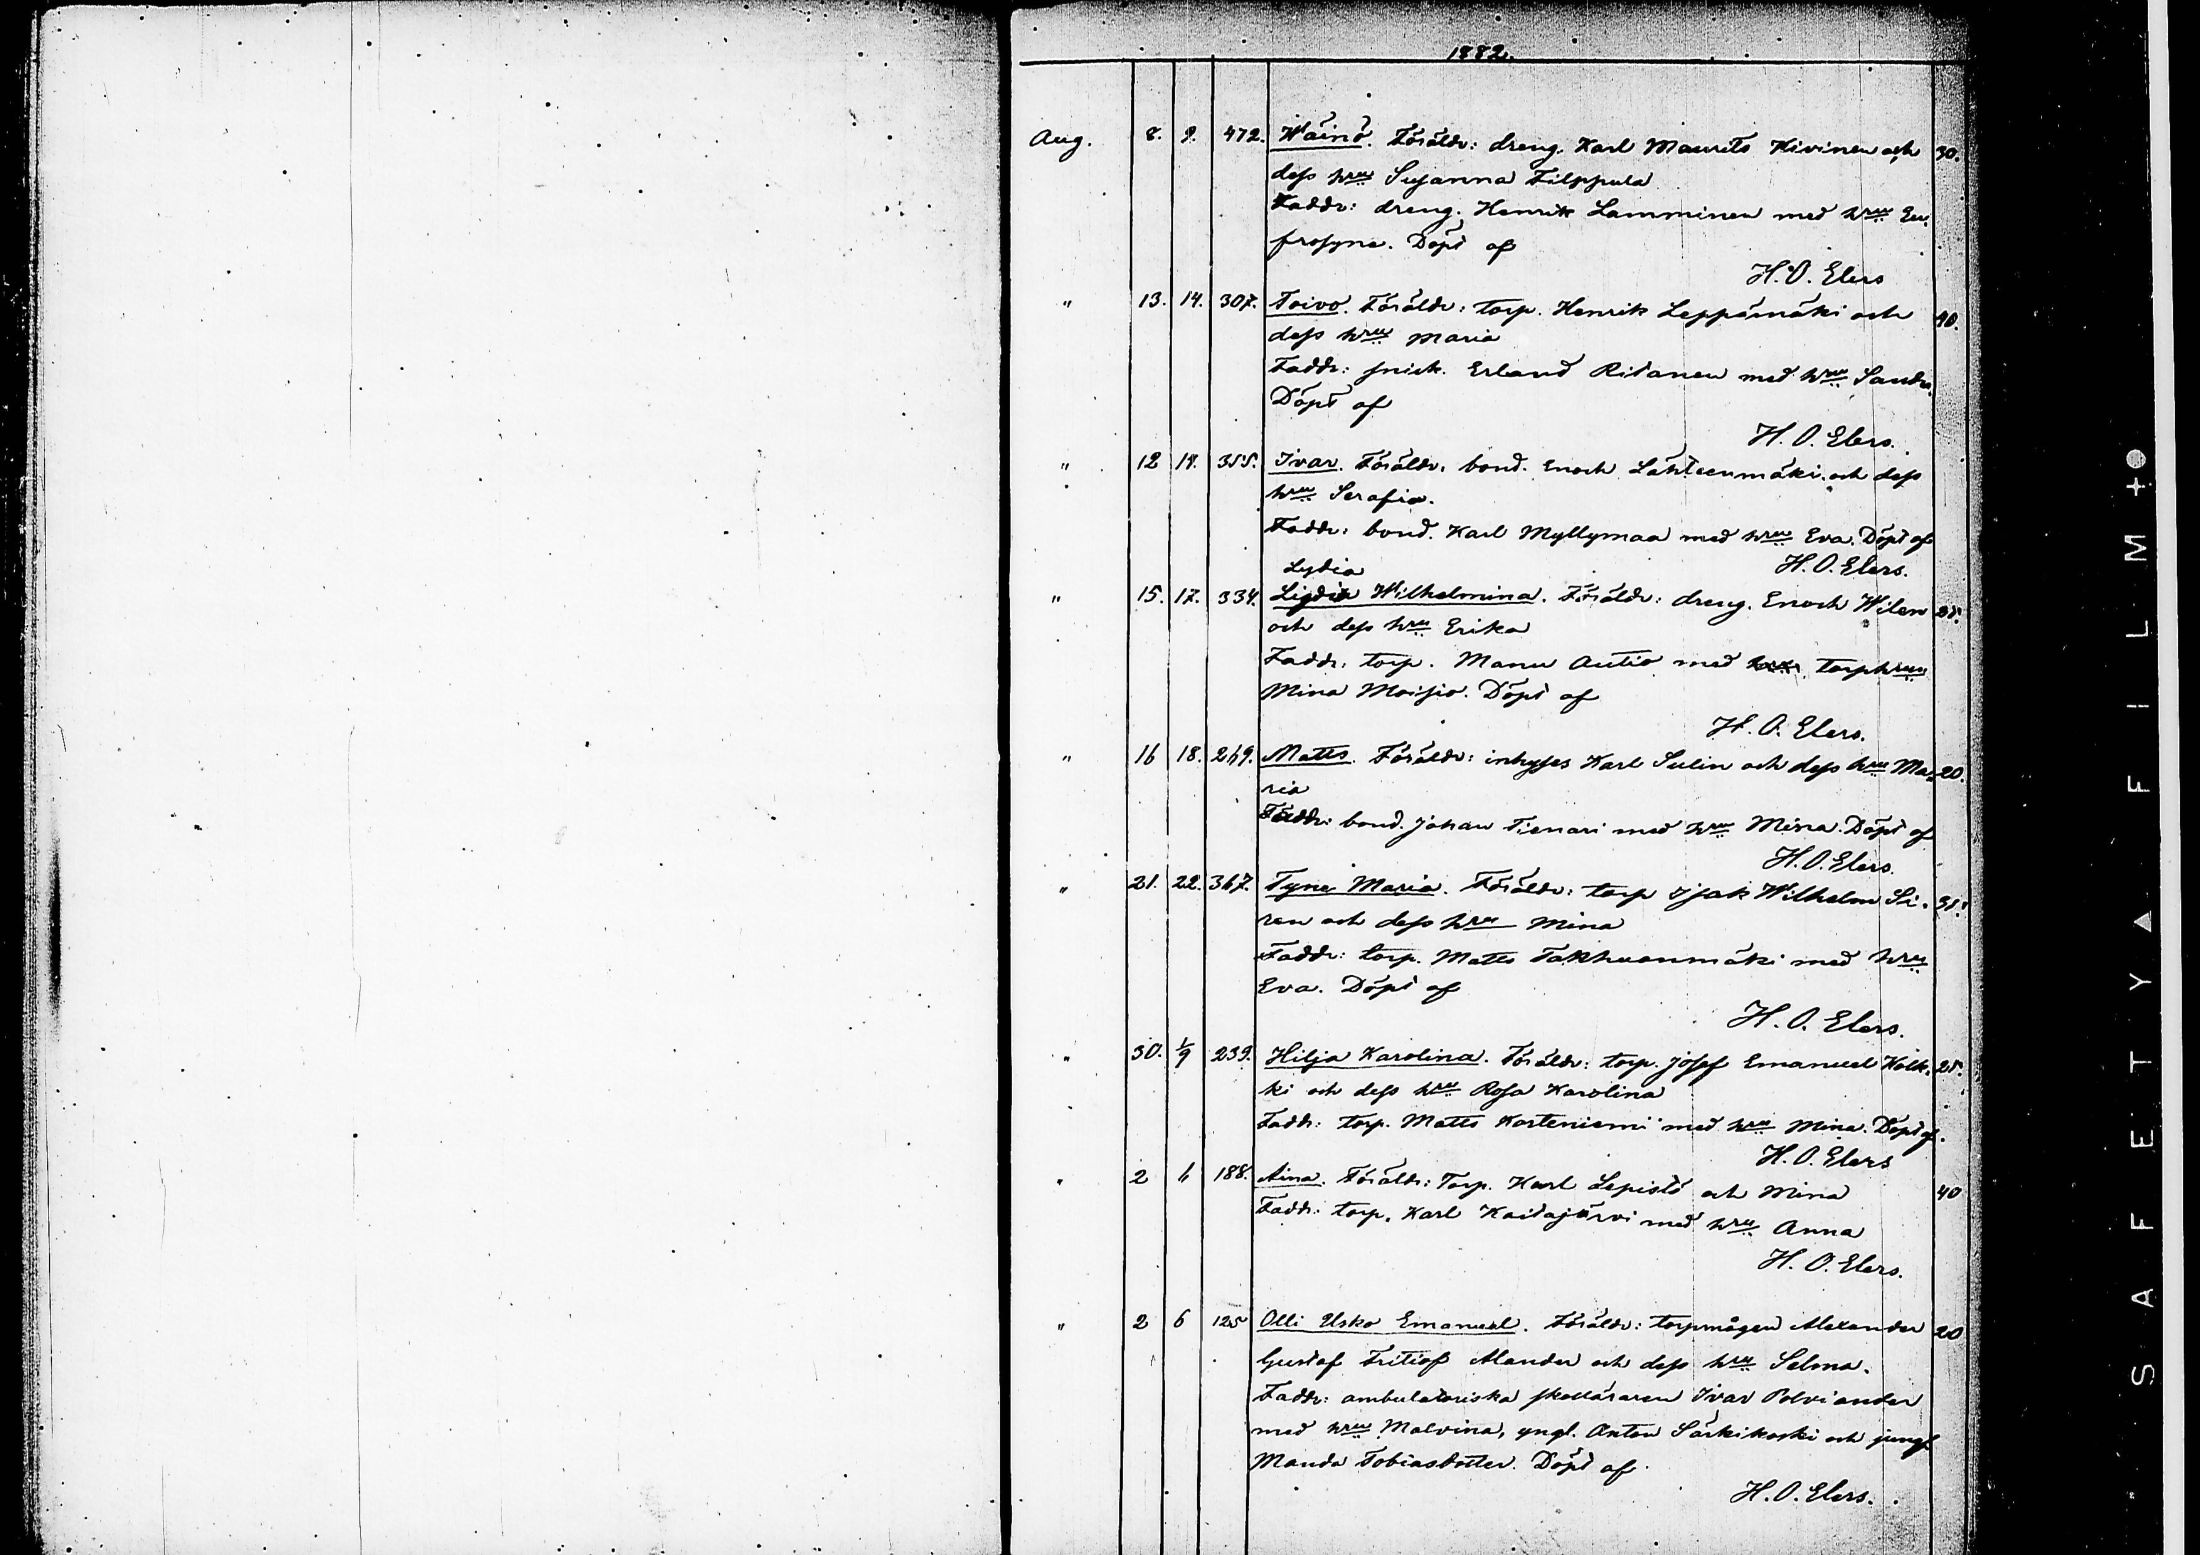 1882.
Aug. 8. 9. 472. Wäinö. Föräldr: dreng. Karl Maurits Kivinen och 30.
dess hru Susanna Filppula
Faddr: dreng. Henrik Lamminen med hru Eu-
frosyne. Döpt af
H. O. Elers
" 13. 14. 307. Toivo. Föräldr: torp. Henrik Leppämäki och 40.
dess hru Maria
Faddr: snick. Erland Ritanen med hru Sandra
Döpt af
H. O. Elers.
" 12 14. 355. Ivar. Föräldr: bond. Enoch Lähteenmäki och dess
hru Serafia.
Faddr: bond. Karl Myllymaa med hru Eva. Döpt af
Lydia H. O. Elers.
" 15. 17. 334. Ligdia Wilhelmina. Föräldr: dreng. Enoch Wilen 25.
och dess hru Erika
Faddr: torp. Manu Autio med torphru
Mina Moisio. Döpt af
H. O. Elers.
" 16 18. 269. Matts. Föräldr: inhyses Karl Sulin och dess hru Ma= 20.
ria
Faddr: bond. Johan Tienari med hru Mina. Döpt af
H. O. Elers.
" 21. 22. 367. Tyne Maria. Föräldr: torp Isak Wilhelm Si- 35.
ren och dess hru Mina
Faddr: torp. Matts Takhuanmäki med hru
Eva. Döpt af
H. O. Elers.
" 30. 1/9 239. Hilja Karolina. Föräldr: torp. Josef Emanuel Kolk- 25.
ki och dess hru Rosa Karolina
Faddr: torp. Matts Korteniemi med hru Mina. Döpt af.
H. O. Elers
" 2 6 188. Aina. Föräldr: Torp. Karl Lepistö och Mina 40
Faddr: torp. Karl Kaitajärvi med hru Anna
H. O. Elers.
" 2 6 125 Olli Usko Emanuel. Föräldr: torpmågen Alexander 20
Gustaf Fritiof Alander och dess hru Selma.
Faddr: ambulatoriska skolläraren Ivar Polviander
med hru Malvina, yngl. Anton Särkikoski och jungf.
Manda Tobiasdotter. Döpt af
H. O. Elers.
SAFETY▲FILM+●